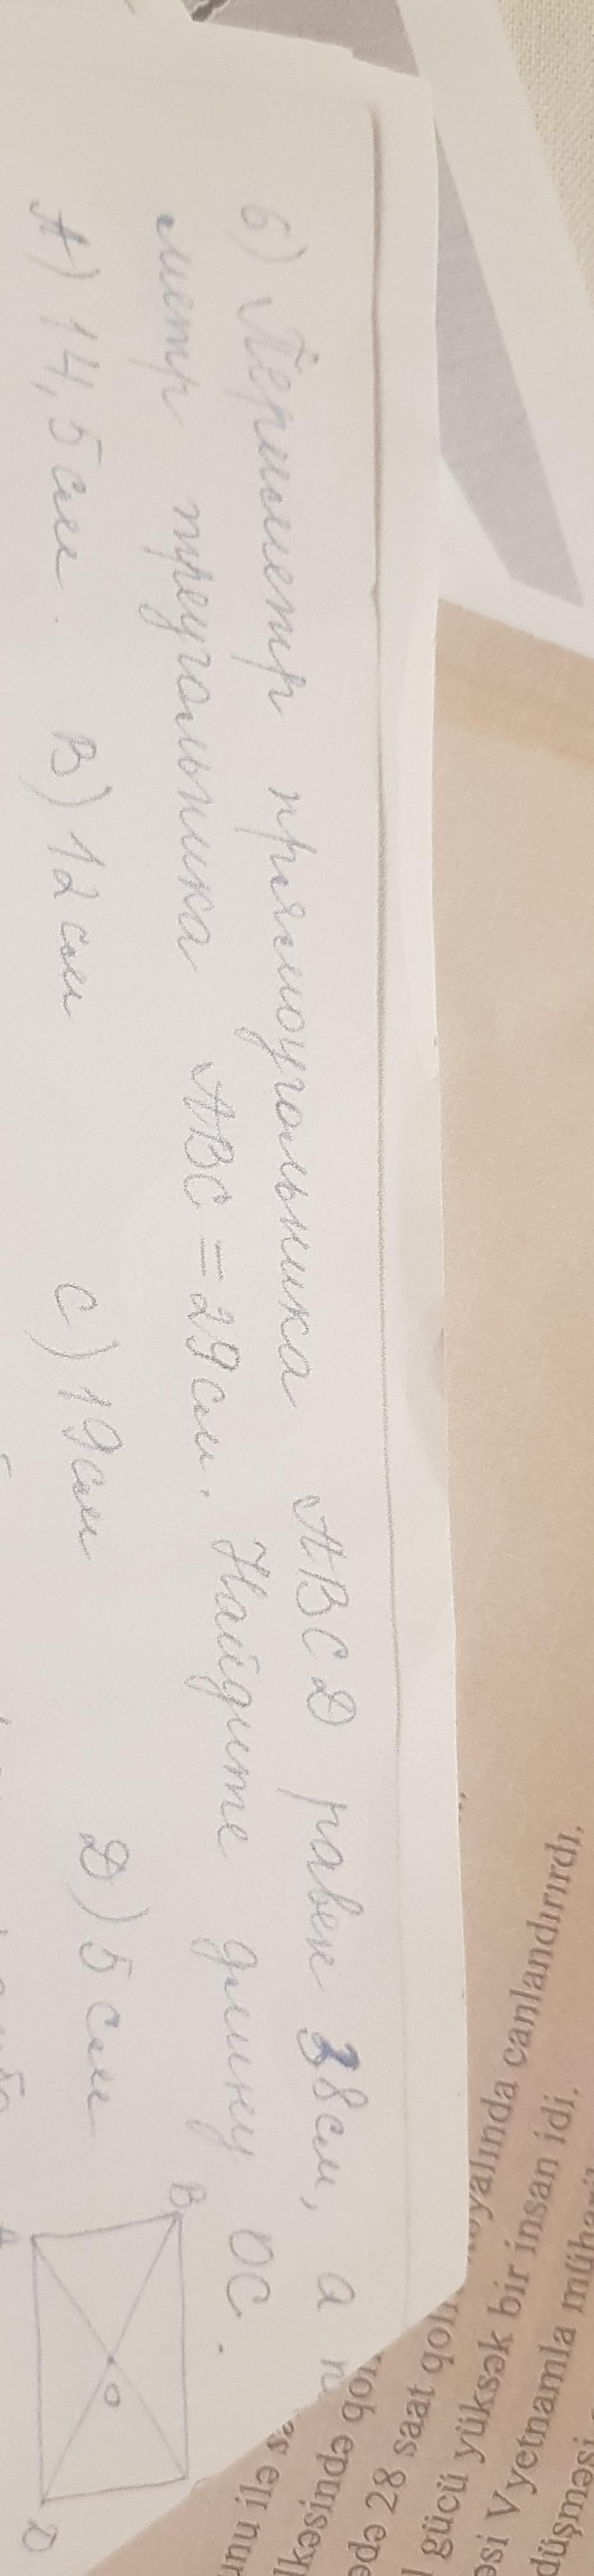 6) Периметр прямоугольника ABCD равен 38см, а п
метр треугольника ABC = 29см. Найдите длину OC.
A) 14,5см B) 12см C) 19см D) 5см
B
O
D
yalında canlandırırdı,
gücü yüksək bir insan idi.
əsi Vyetnamla
düşməsi
ədə 28 saat
lkəsində
unu ilə